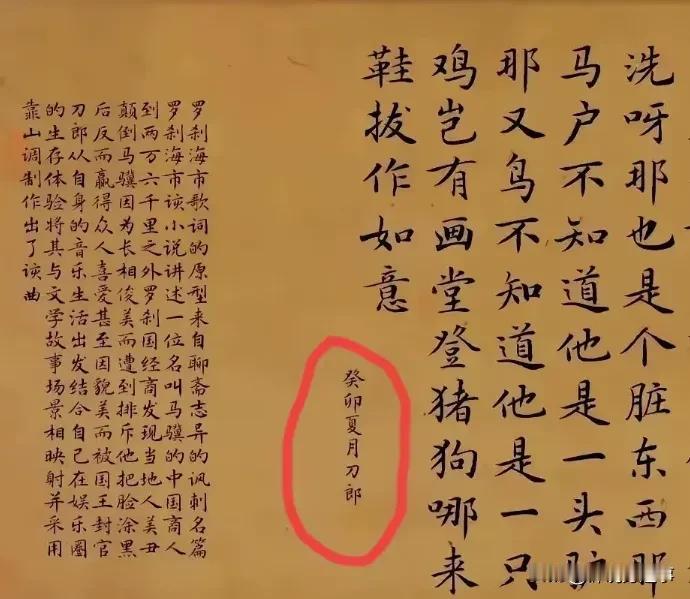 洗呀那也是个脏东西那
马户不知道他是一头驴
那又鸟不知道他是一只
鸡岂有画堂登猪狗哪来
鞋拔作如意
癸卯夏月刀郎
罗刹海市歌词的原型来自聊斋志异的讽刺名篇
罗刹海市该小说讲述一位名叫马骥的中国商人
到两万六千里之外罗刹国经商发现当地人美丑
颠倒马骥因为长相俊美而遭到排斥他把脸涂黑
后反而赢得众人喜爱甚至因貌美而被国王封官
刀郎从自身的音乐生活出发结合自己在娱乐圈
的生存体验将其与文学故事场景相映射并采用
靠山调制作出了该曲